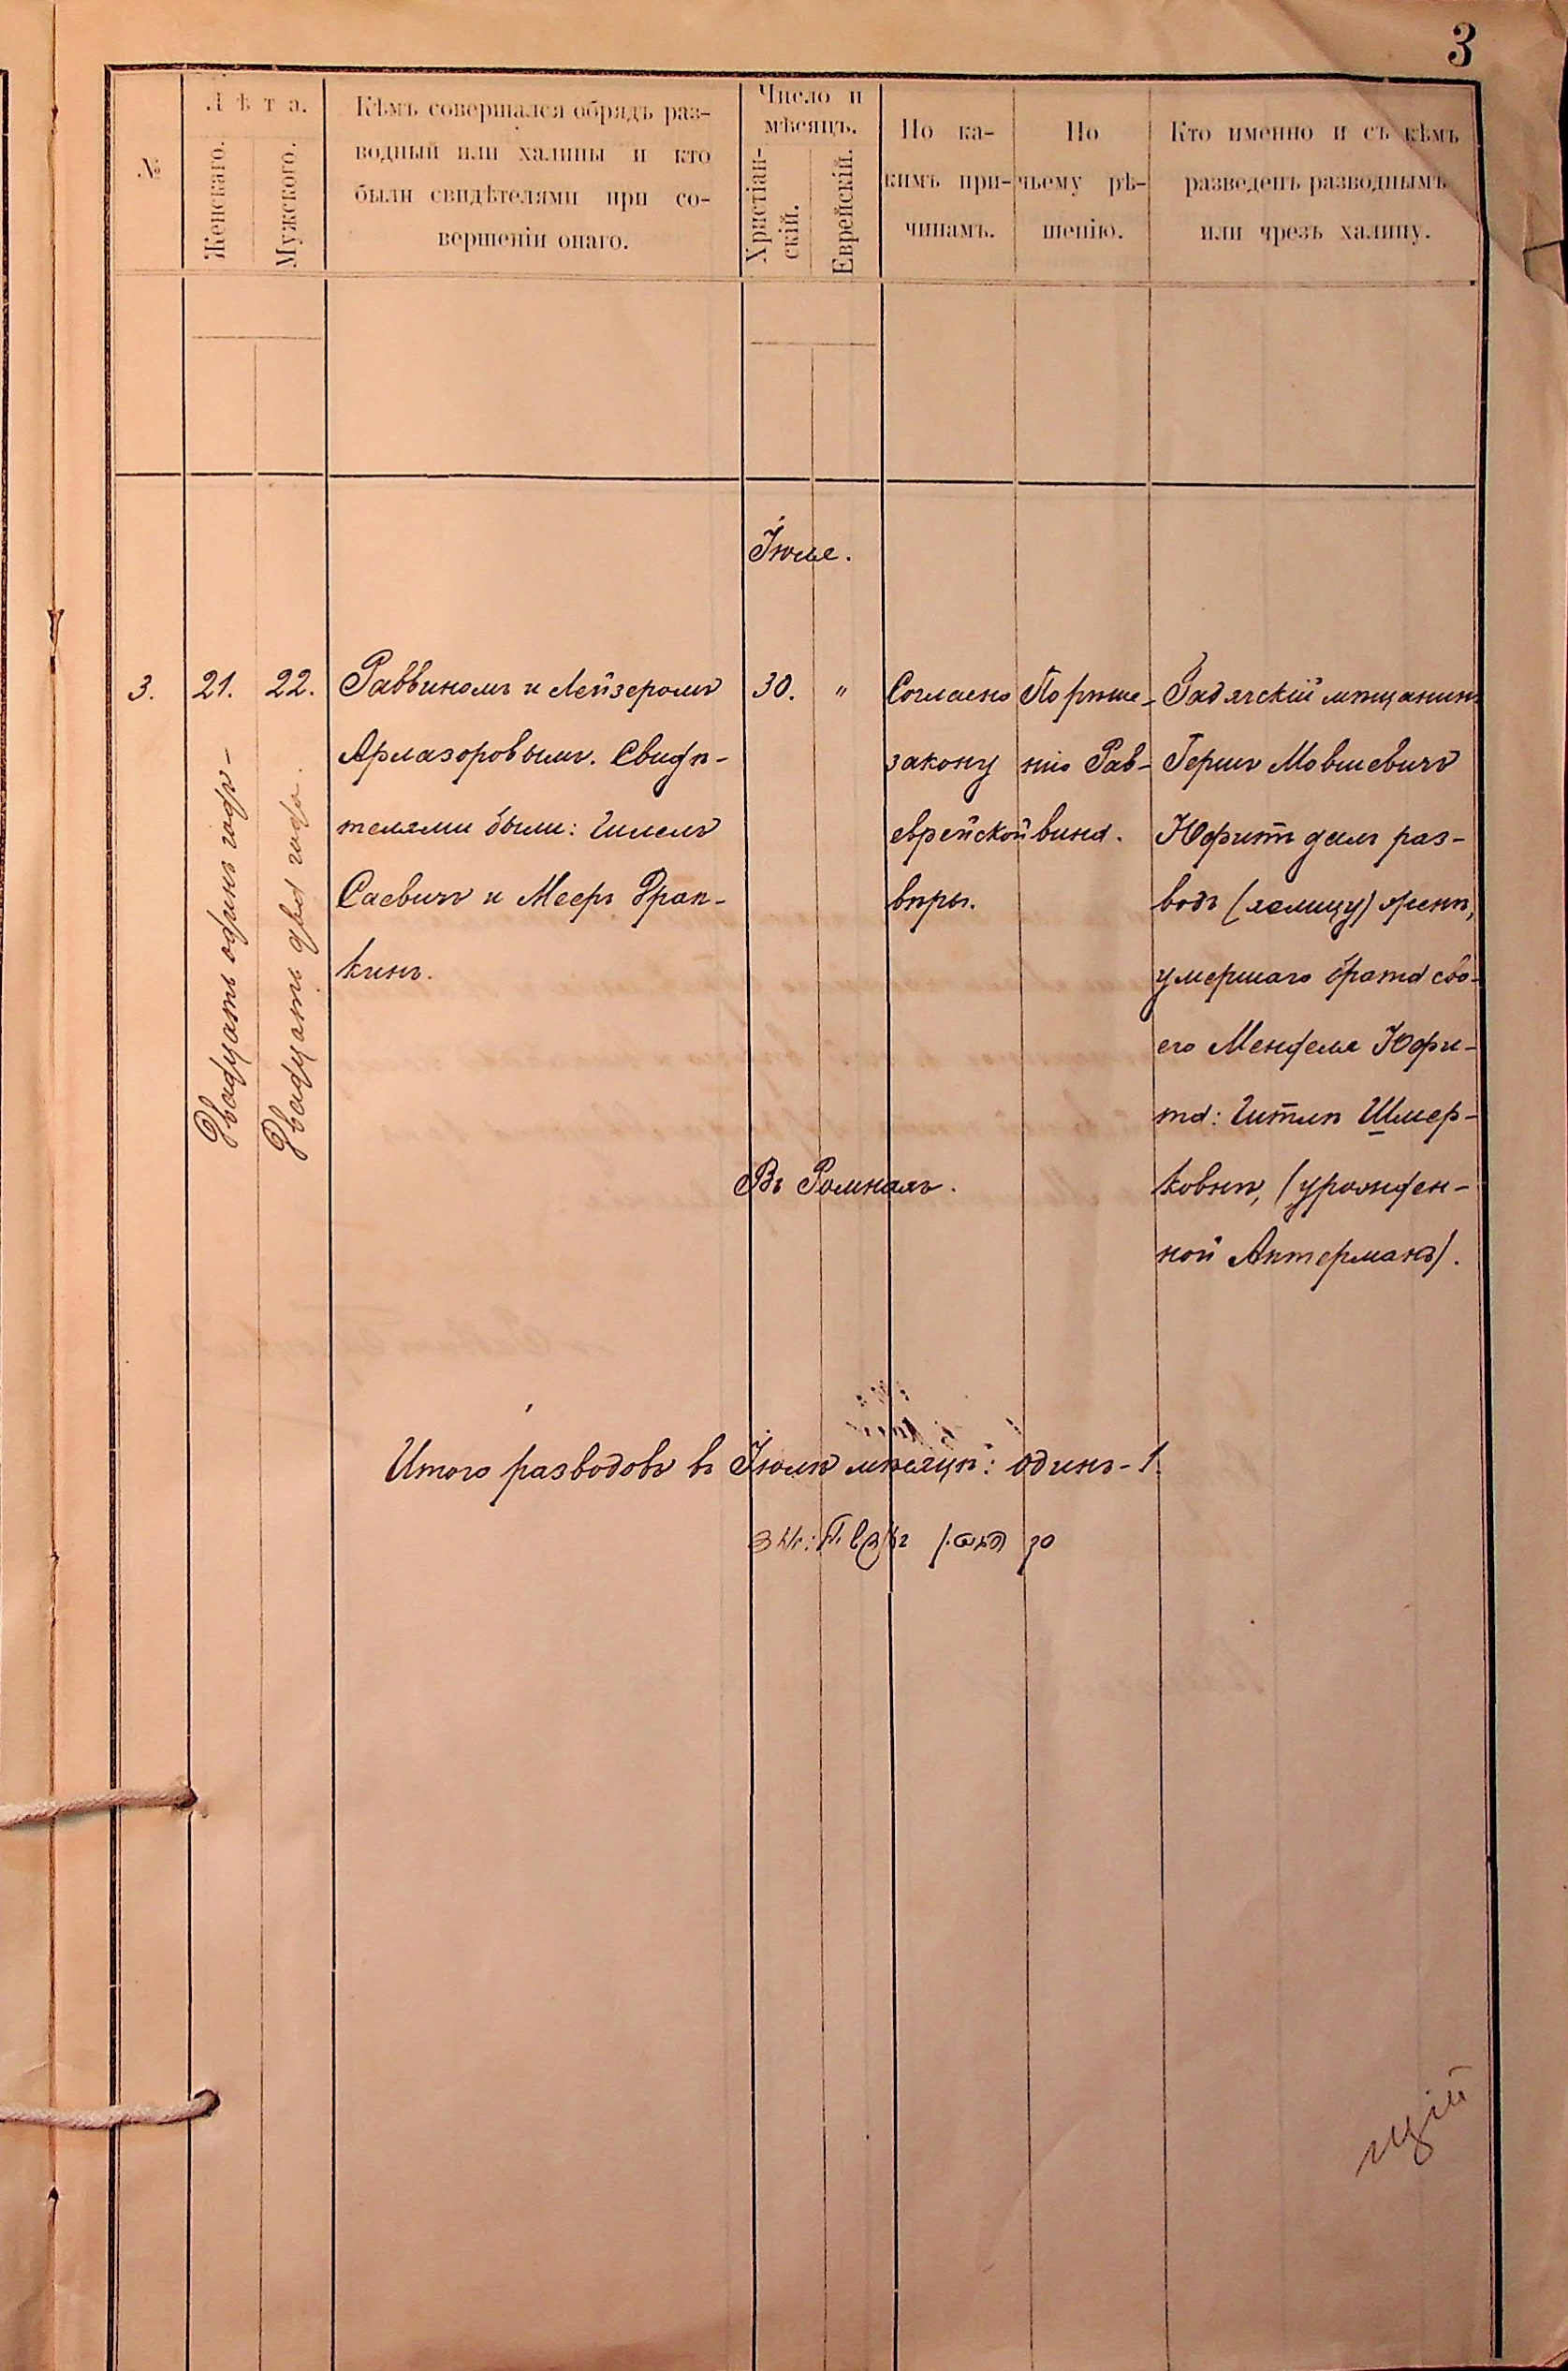 3
№
Лѣта.
Женскаго.
Мужского.
Кѣмъ совершался обрядъ раз-
водный или халицы и кто
были свидѣтелями при со-
вершеніи онаго.
Число и
мѣсяцъ.
Христіан-
скій.
Еврейскій.
По ка-
кимъ при-
чинамъ.
По
чьему рѣ-
шенію.
Кто именно и съ кѣмъ
разведенъ разводнымъ
или чрезъ халицу.
Іюле.
3.
21.
Двадцать одинъ годъ -
22.
Двадцать два года.
Раввиномъ и Лейзеромъ
Армазоровымъ. Свидѣ-
телями были: Ишемъ
Саевичъ и Меерѣ Фрап-
кинъ.
30. "
Въ Ромнахъ.
Согласно
закону
еврейской
вѣры.
По рѣше-
нію Рав-
вина.
Гадячскій мѣщанинъ
Гершъ Мовшевичъ
Юфитъ далъ раз-
водъ (халицу) женѣ,
умершаго брата сво-
его Менделя Юфи-
та: Итлѣ Шмер-
ковнѣ, (урожден-
ной Актерманъ).
Итого разводовъ въ Іюлѣ мѣсяцѣ: одинъ - 1.
щій